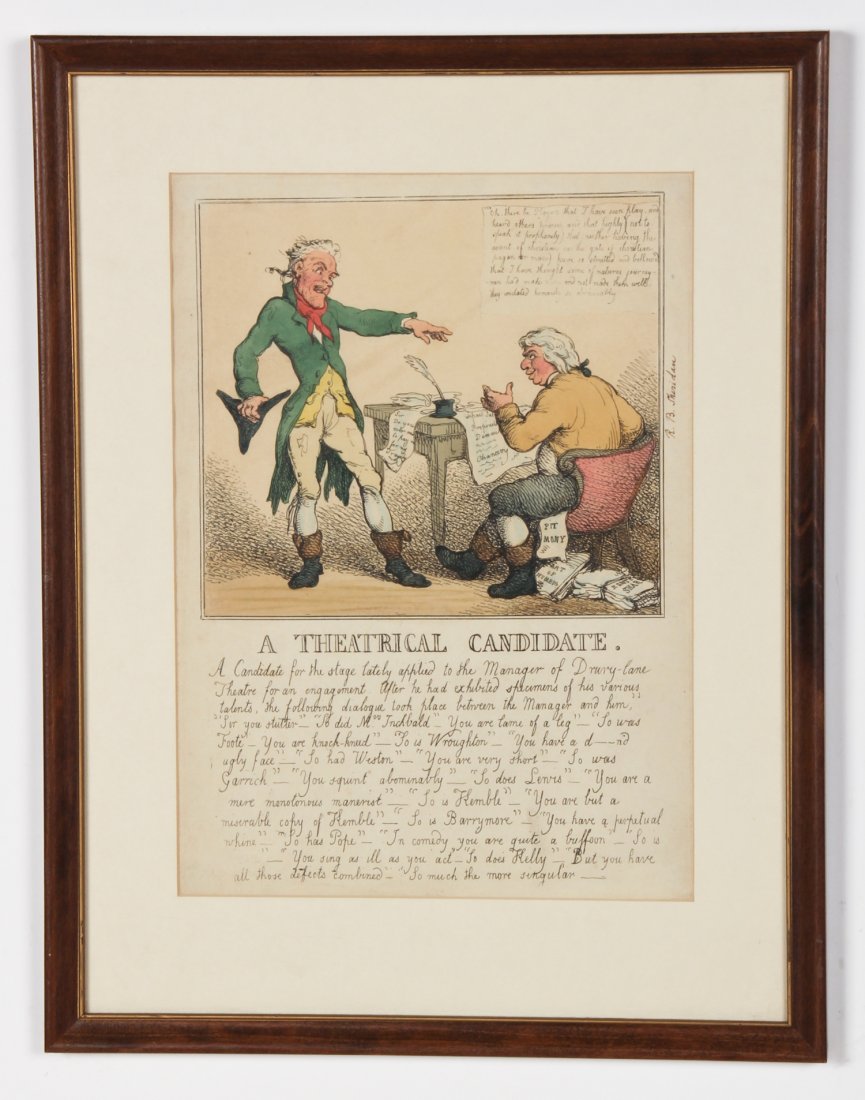 "Oh there be Players that I have seen play, and
heard others praise, and that highly (not to
speak it prophanely) that neither having the
accent of christian, nor the gate of christian
pagan or man) have so strutted and bellowed
that I have thought some of natures journey-
men had made men and not made them well
they imitated humanity so abominably
R. B. Sheridan
Sir
Chancery
PIT
MONY
OF
A THEATRICAL CANDIDATE.
A Candidate for the stage lately applied to the Manager of Drury-lane
Theatre for an engagement. After he had exhibited specimens of his various
talents, the following dialogue took place between the Manager and him,
"Sir you stutter" — "So did Mrs Inchbald" — You are lame of a leg" — "So was
Foote" — You are knock-kneed" — So is Wroughton" — "You have a d——nd
ugly face" — "So had Weston" — "You are very short" — "So was
Garrick" — "You squint abominably" — "So does Lewis" — "You are a
mere monotonous manerist" — "So is Kemble" — "You are but a
miserable copy of Kemble" — "So is Barrymore" — "You have a perpetual
whine" — "So has Pope" — "In comedy you are quite a buffoon" — "So is
" — "You sing as ill as you act" — "So does Kelly" — "But you have
all those defects combined" — "So much the more singular —